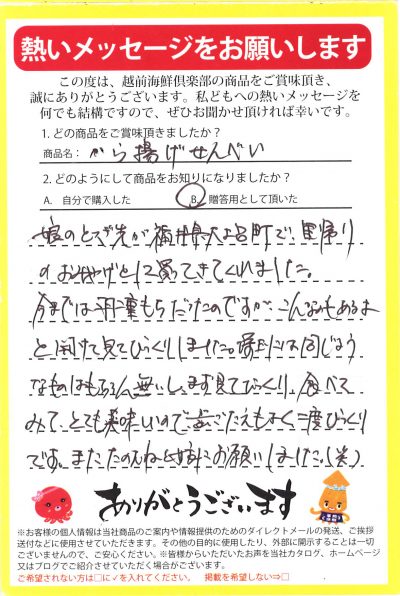 熱いメッセージをお願いします
この度は、越前海鮮倶楽部の商品をご賞味頂き、
誠にありがとうございます。私どもへの熱いメッセージを
何でも結構ですので、ぜひお聞かせ頂ければ幸いです。
1. どの商品をご賞味頂きましたか？
商品名： から揚げせんべい
2. どのようにして商品をお知りになりましたか？
A. 自分で購入した B. 贈答用として頂いた
娘のとつぎ先が福井県大よ呂町で、里帰り
のおみやげとして買ってきてくれました。
今までは羽二重もちだったのですが、こんなのもあるよ
と開けて見てびっくりしました。埼玉には同じような
ものはもちろん無いし、まず見てびっくり、食べて
みて、とても美味しいので歯ごたえもよく二度びっくり
です。またたのむねと娘にお願いしました。(笑)
ありがとうございます
※お客様の個人情報は当社商品のご案内や情報提供のためのダイレクトメールの発送、ご挨拶
送付などに使用させていただきます。その他の目的に使用したり、外部に開示することは一切
ございませんので、ご安心ください。※皆様からいただいたお声を当社カタログ、ホームページ
又はブログでご紹介させていただく場合がございます。
ご希望されない方は□に✓を入れてください。 掲載を希望しない⇒□